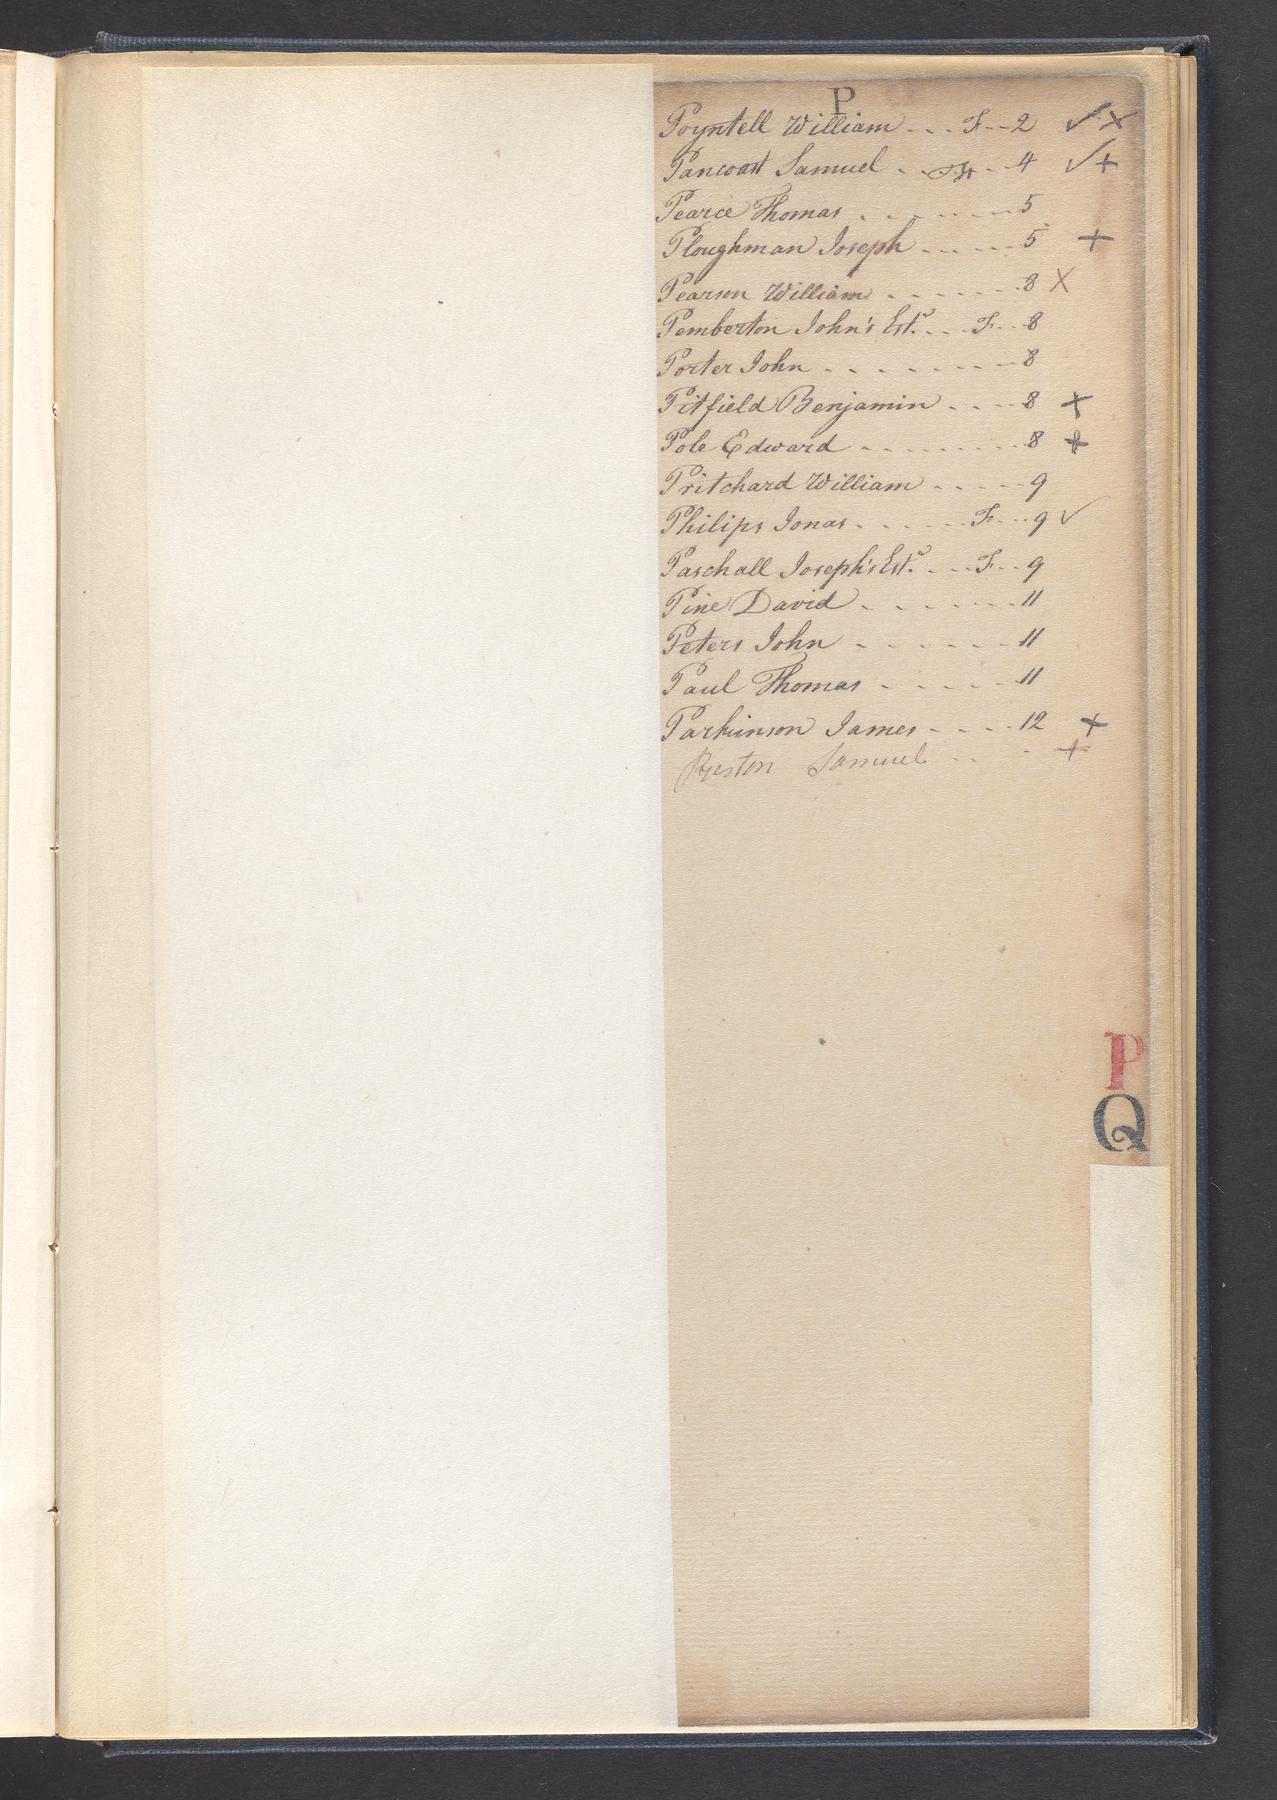 P
Poyntell William - - - F - - 2 ✓ ×
Pancoast Samuel - - - 4 ✓ +
Pearce Thomas - - - - - - 5
Ploughman Joseph - - - - - 5 +
Pearson William - - - - - - 8 ×
Pemberton John's Est.e - - - F - - 8
Porter John - - - - - - - - 8
Pitfield Benjamin - - - - 8 +
Pole Edward - - - - - - - - 8 +
Pritchard William - - - - - 9
Philips Jonas - - - - - - F - - - 9 ✓
Paschall Joseph's Est.e - - - F - - 9
Pine David - - - - - - - 11
Peters John - - - - - - 11
Paul Thomas - - - - - 11
Parkinson James - - - - - 12 +
Preston Samuel - - - +
P
Q